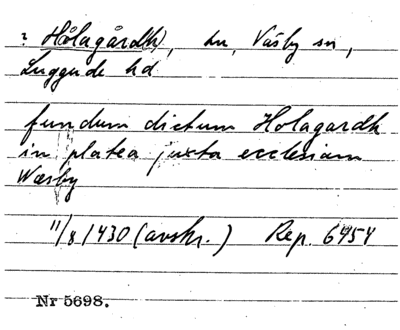 ? Hålagårdh, hu, Väsby sn,
Luggude hd
fundum dictum Holagardh
in platea juxta ecclesiam
Wæsby
11/8 1430 (avskr.) Rep. 6454
Nr 5698.